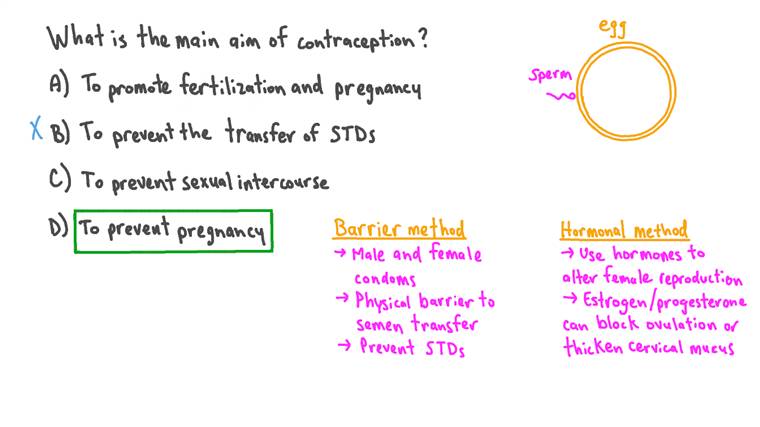 What is the main aim of contraception?
A) To promote fertilization and pregnancy
X B) To prevent the transfer of STDs
C) To prevent sexual intercourse
D) To prevent pregnancy
egg
sperm
Barrier method
→ Male and female
condoms
→ Physical barrier to
semen transfer
→ Prevent STDs
Hormonal method
→ Use hormones to
alter female reproduction
→ Estrogen/progesterone
can block ovulation or
thicken cervical mucus